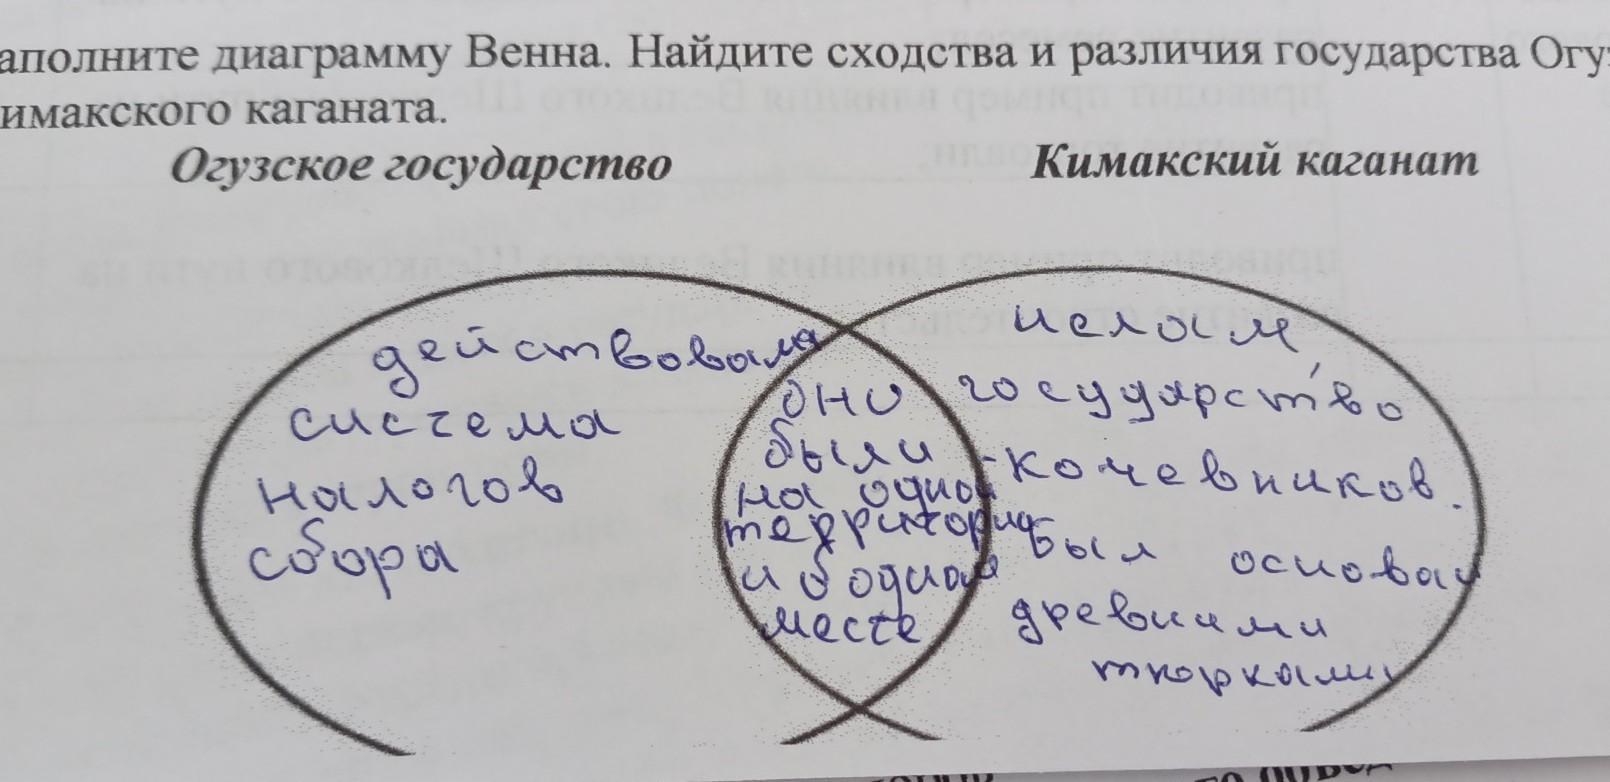 аполните диаграмму Венна. Найдите сходства и различия государства Огу
имакского каганата.
Огузское государство
Кимакский каганат
действовала
система
налогов
сбора
они
были
на одной
территории
и в одном
месте
ислам
государство
-кочевников.
-был основан
древними
тюрками